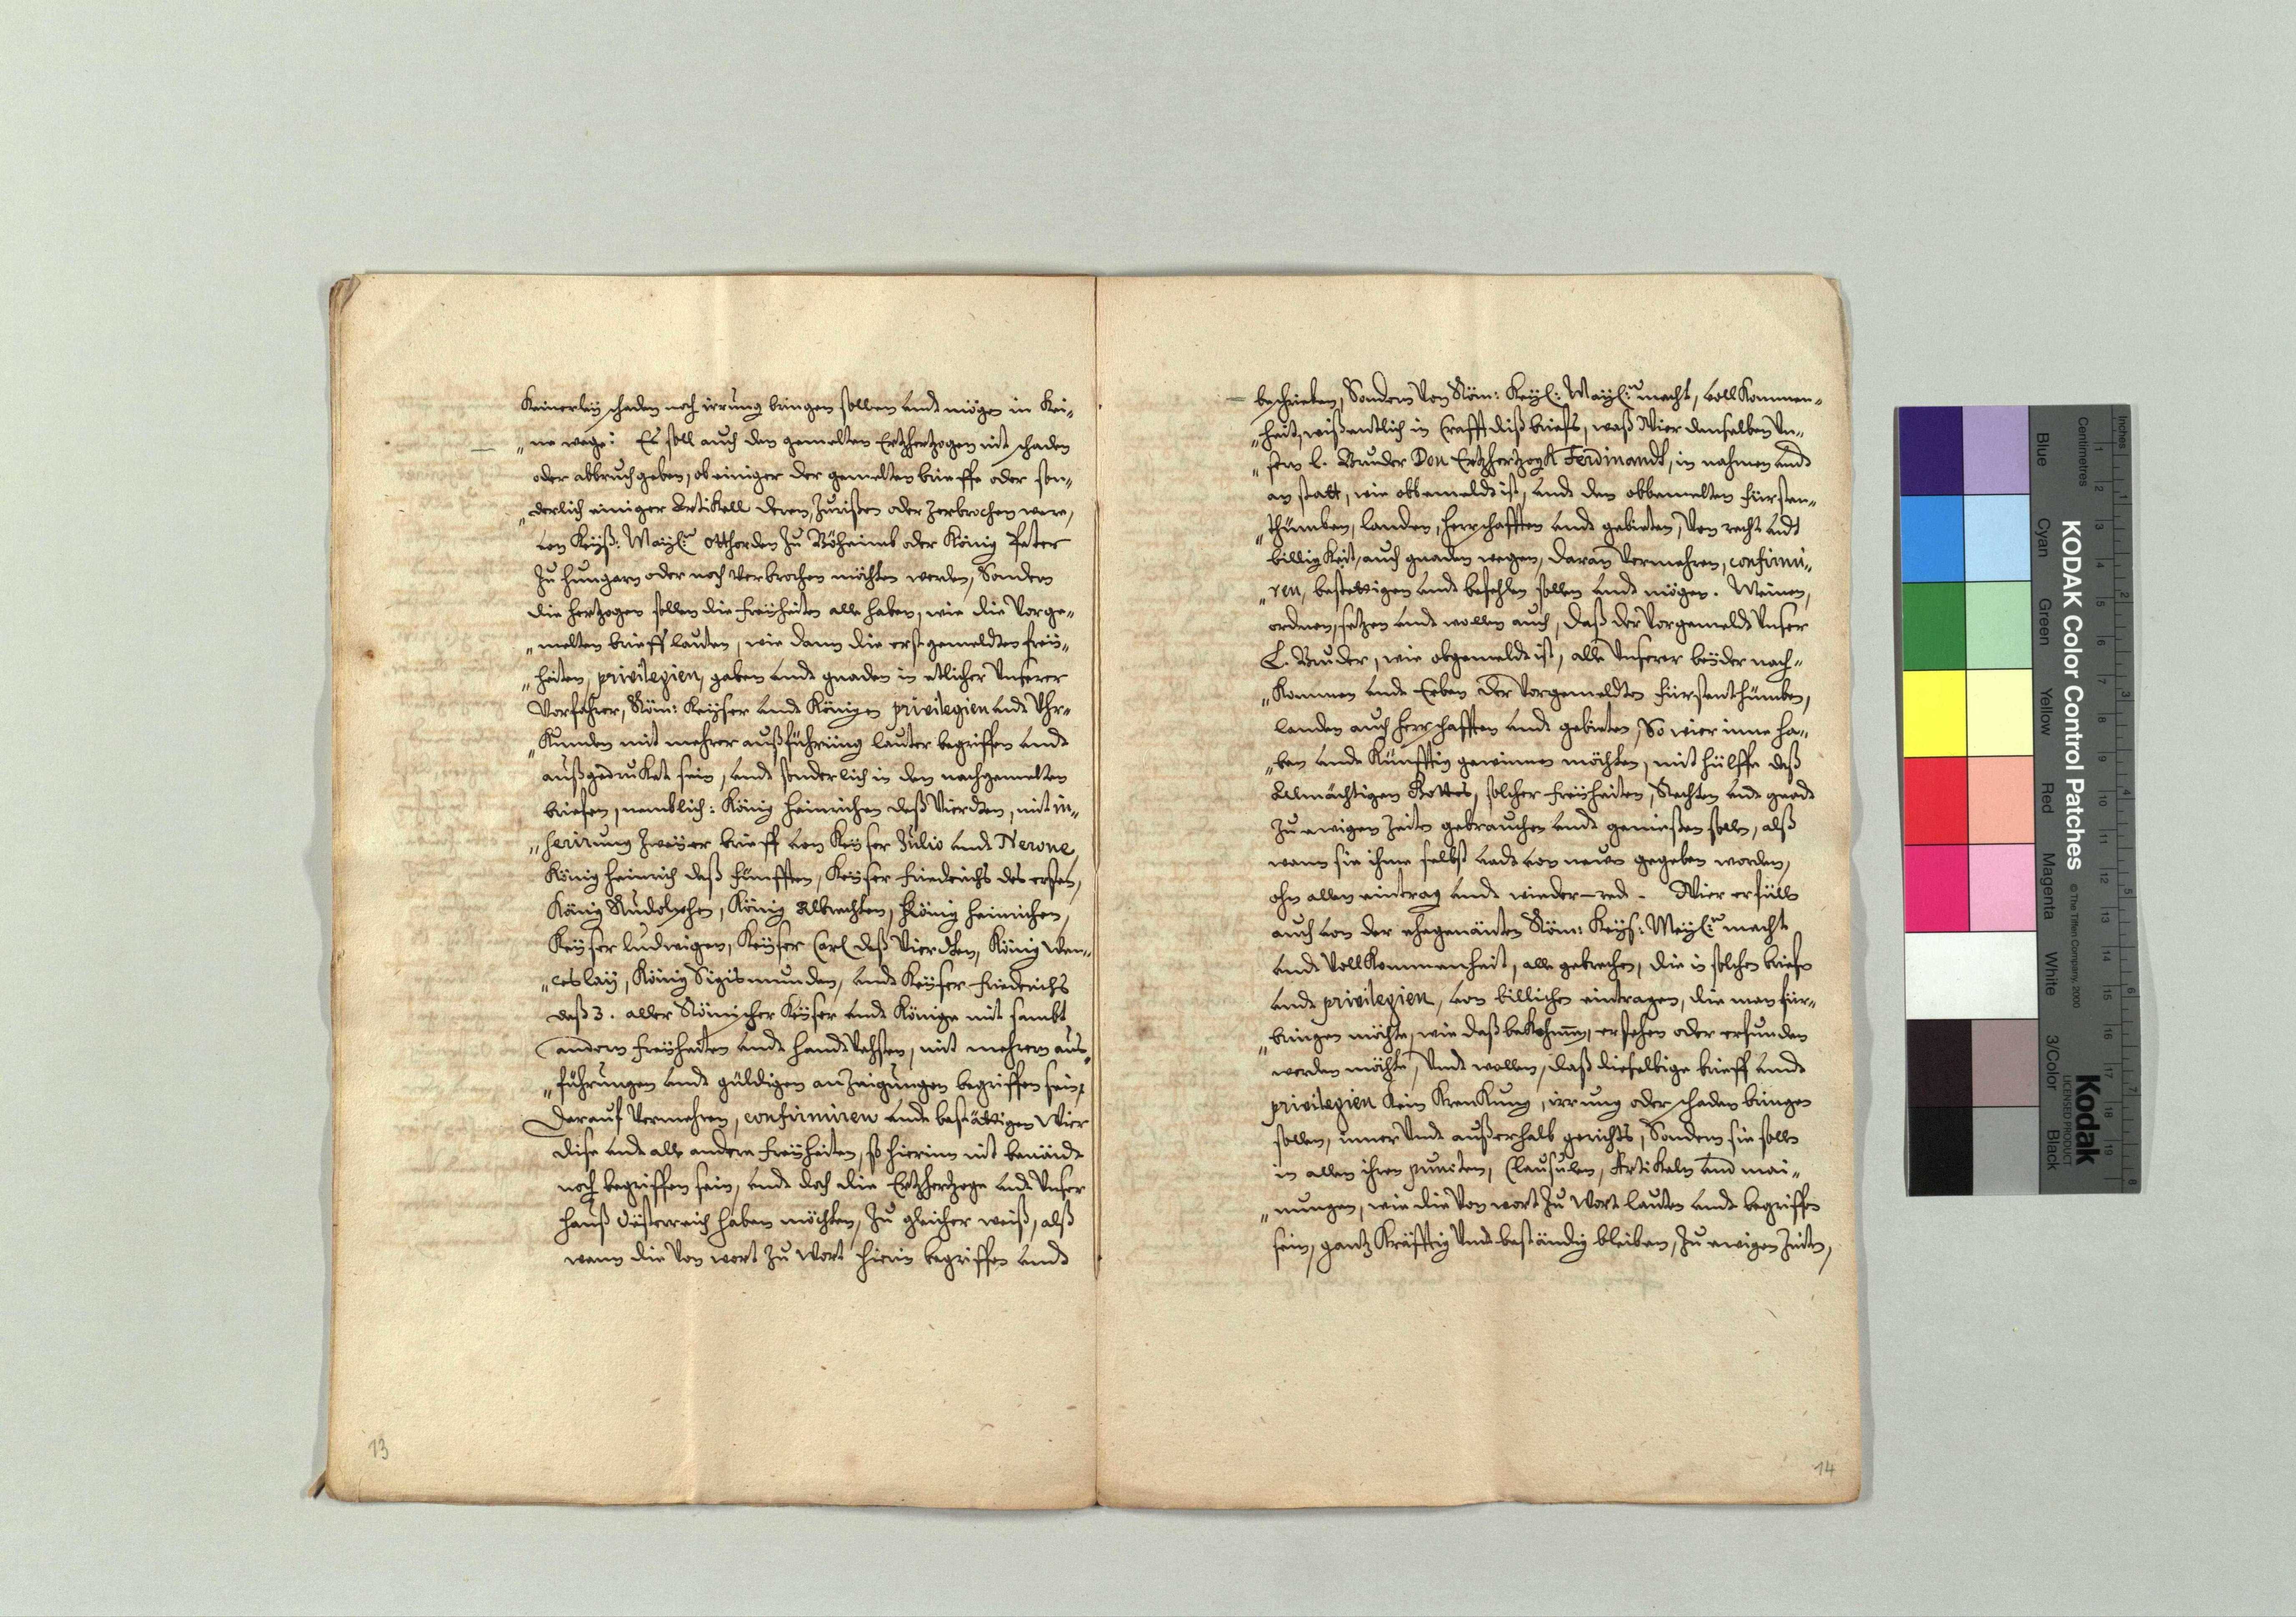 Keinerlaÿ schaden noch irrung bringen sollen undt mögen in Kei-
„ne wege: Es soll auch den gemelten Ertzhertzogen nit schaden
oder abbruch geben, ob einiger der gemelten brieffe oder son-
„derlich einiger Artikell deren, Zurißen oder Zerbrochen were,
von Keÿß: Maÿl:n Otthorden Zu Böheimb oder König Peter
Zu Hungarn oder noch verbrochen möchten werden, Sondern
die Hertzogen sollen die Freÿheiten alle haben, wie die Vorge-
„melten brieff lauten, wie dann die erstgemeldten freÿ-
„heiten, privilegien, gaben undt gnaden in etlicher Unserer
Vorfahrer, Röm: Keÿser undt Königen privilegien undt Uhr-
„Kunden mit mehrer außführung lauter begriffen undt
außgedruket sein, undt sonderlich in den nachgemelten
briefen, nemblich: König Heinrichen deß Vierdten, mit in-
„serirung Zweÿer brieff von Keÿser Julio undt Nerone,
König Heinrich deß Fünfften, Keÿser Friedrichs des ersten,
König Rudolphen, König Albrechten, König Heinrichen,
Keÿser Ludwigen, Keÿser Carl deß Vierdten, König Wen-
„ceslaÿ, König Sigismunden, undt Keÿser Friedrichs
deß 3. aller Römischer Keÿser undt Könige mit sambt
andern Freÿheiten undt Handtvehsten, mit mehrern aus-
„führungen undt güldigen anZaigungen begriffen sein,
Darauf Vermehren, confirmiren undt bestättigen Wier
dise undt alle andere Freÿheiten, so hierinn nit benändt
noch begriffen sein, undt doch die Ertzhertzoge undt Unser
Hauß Össterreich haben möchten, Zu gleicher weiß, alß
wann die Von wort Zu Wort hierin begriffen undt
13
beschrieben, Sondern Von Röm: Keÿl: Maÿl:n macht, vollKommen-
„heit, wißentlich in Crafft diß briefs, waß Wier denselben Un-
„sern l. Bruder Don Ertzhertzogk Ferdinandt, in nahmen undt
an statt, wie obbemeldt ist, undt den obbemelten Fürsten-
„thümben, Landen, Herrschafften undt gebieten, Von recht undt
billigKeit, auch gnaden wegen, daran Vermehren, confirmi-
„ren, bestettigen undt befehlen sollen undt mögen. Meinen,
ordnen, setzen undt wollen auch, daß der Vorgemeldt Unser
L. Bruder, wie obgemeldt ist, alle Unserer beÿder nach-
„Kommen undt Erben der Vorgemeldten Fürstenthümben,
Landen auch Herrschafften undt gebieten, So wier inne ha-
„ben undt Künfftig gewinnen möchten, mit hülffe deß
Allmächtigen Gottes, solcher Freÿheiten, Rechten undt gnade
Zu ewigen Zeiten gebrauchen undt genießen sollen, alß
wann sie ihme selbst undt von neuen gegeben worden,
ohn allen eintrag undt wieder-red. Wier erfüllen
auch von der ehegenänten Röm: Keÿs: Maÿl:n macht
undt VollKommenheit, alle gebrechen, die in solchen briefen
undt privilegien, von billichen eintragen, die man für-
„bringen möchte, wie daß beKohmen, ersehen oder erfunden
werden möchte, Undt wollen, daß dieselbige brieff undt
privilegien Kein KrenKung, irrung oder schaden bringen
sollen, inner Undt außerhalb gerichts, Sondern sie sollen
in allen ihren puncten, Clausulen, Artikeln und mai-
„nungen, wie die Von wort Zu Wort lauten undt begriffen
sein, gantz Kräfftig Undt beständig bleiben, Zu ewigen Zeiten,
14
KODAK Color Control Patches
© The Tiffen Company, 2000
Kodak
LICENSED PRODUCT
Inches
Centimetres
Blue
Cyan
Green
Yellow
Red
Magenta
White
3/Color
Black